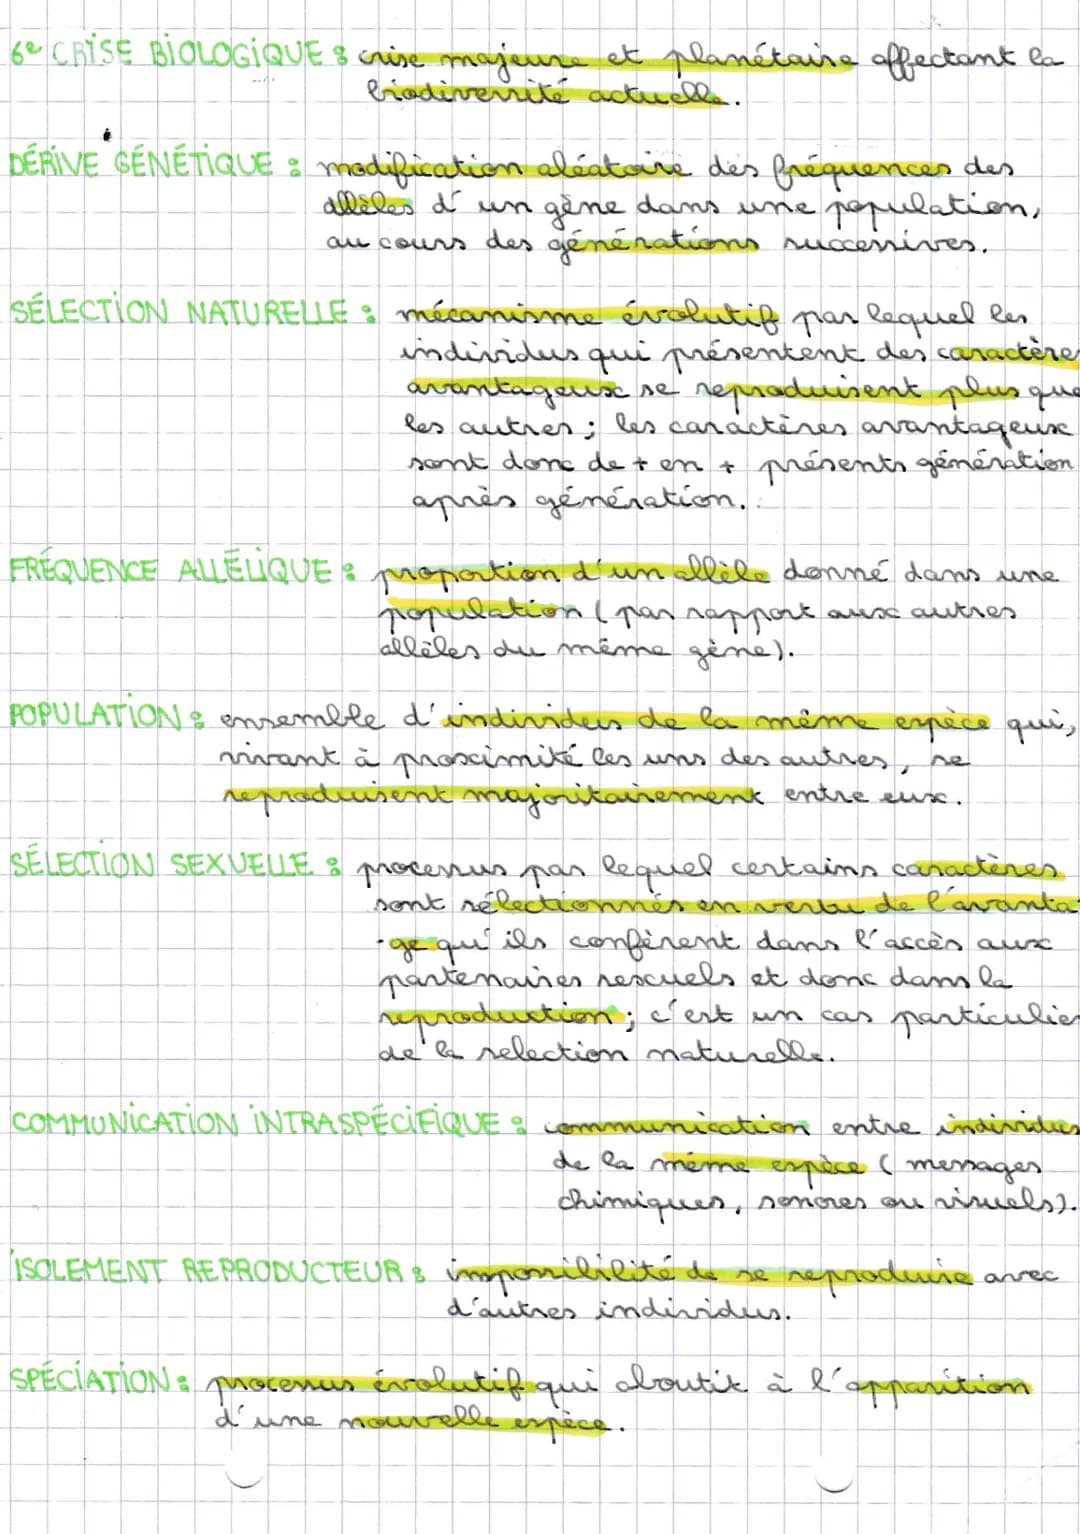 6e CRISE BIOLOGIQUE : crise majeure et planétaire affectant la
biodiversité actuelle.
DÉRIVE GÉNÉTIQUE : modification aléatoire des fréquences des
allèles d'un gène dans une population,
au cours des générations successives.
SÉLECTION NATURELLE : mécanisme évolutif par lequel les
individus qui présentent des caractères
avantageux se reproduisent plus que
les autres ; les caractères avantageux
sont donc de + en + présents génération
après génération.
FRÉQUENCE ALLÉLIQUE : proportion d'un allèle donné dans une
population (par rapport aux autres
allèles du même gène).
POPULATION : ensemble d'individus de la même espèce qui,
vivant à proximité les uns des autres, se
reproduisent majoritairement entre eux.
SÉLECTION SEXUELLE : processus par lequel certains caractères
sont sélectionnés en vertu de l'avanta
-ge qu'ils confèrent dans l'accès aux
partenaires sexuels et donc dans la
reproduction ; c'est un cas particulier
de la selection naturelle.
COMMUNICATION INTRASPÉCIFIQUE : communication entre individus
de la même espèce (messages
chimiques, sonores ou visuels).
ISOLEMENT REPRODUCTEUR : impossibilité de se reproduire avec
d'autres individus.
SPÉCIATION : processus évolutif qui aboutit à l'apparition
d'une nouvelle espèce.